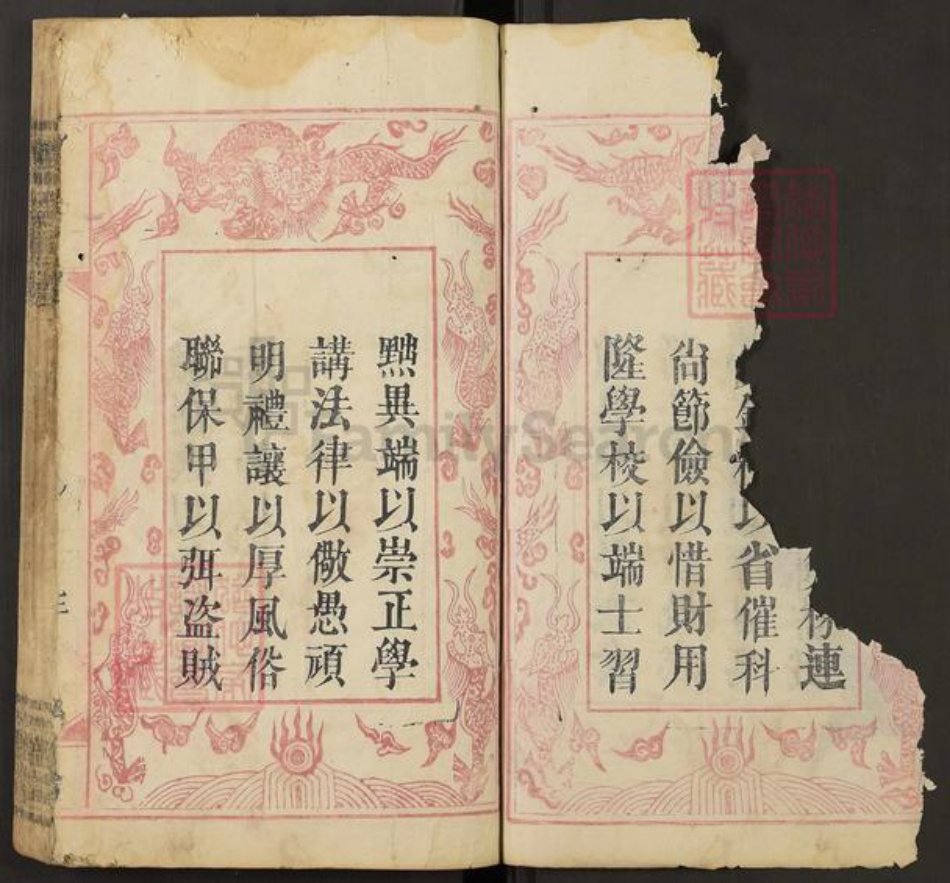 連
以省催科
尚節儉以惜財用
隆學校以端士習
黜異端以崇正學
講法律以儆愚頑
明禮讓以厚風俗
聯保甲以弭盗賊
FamilySearch